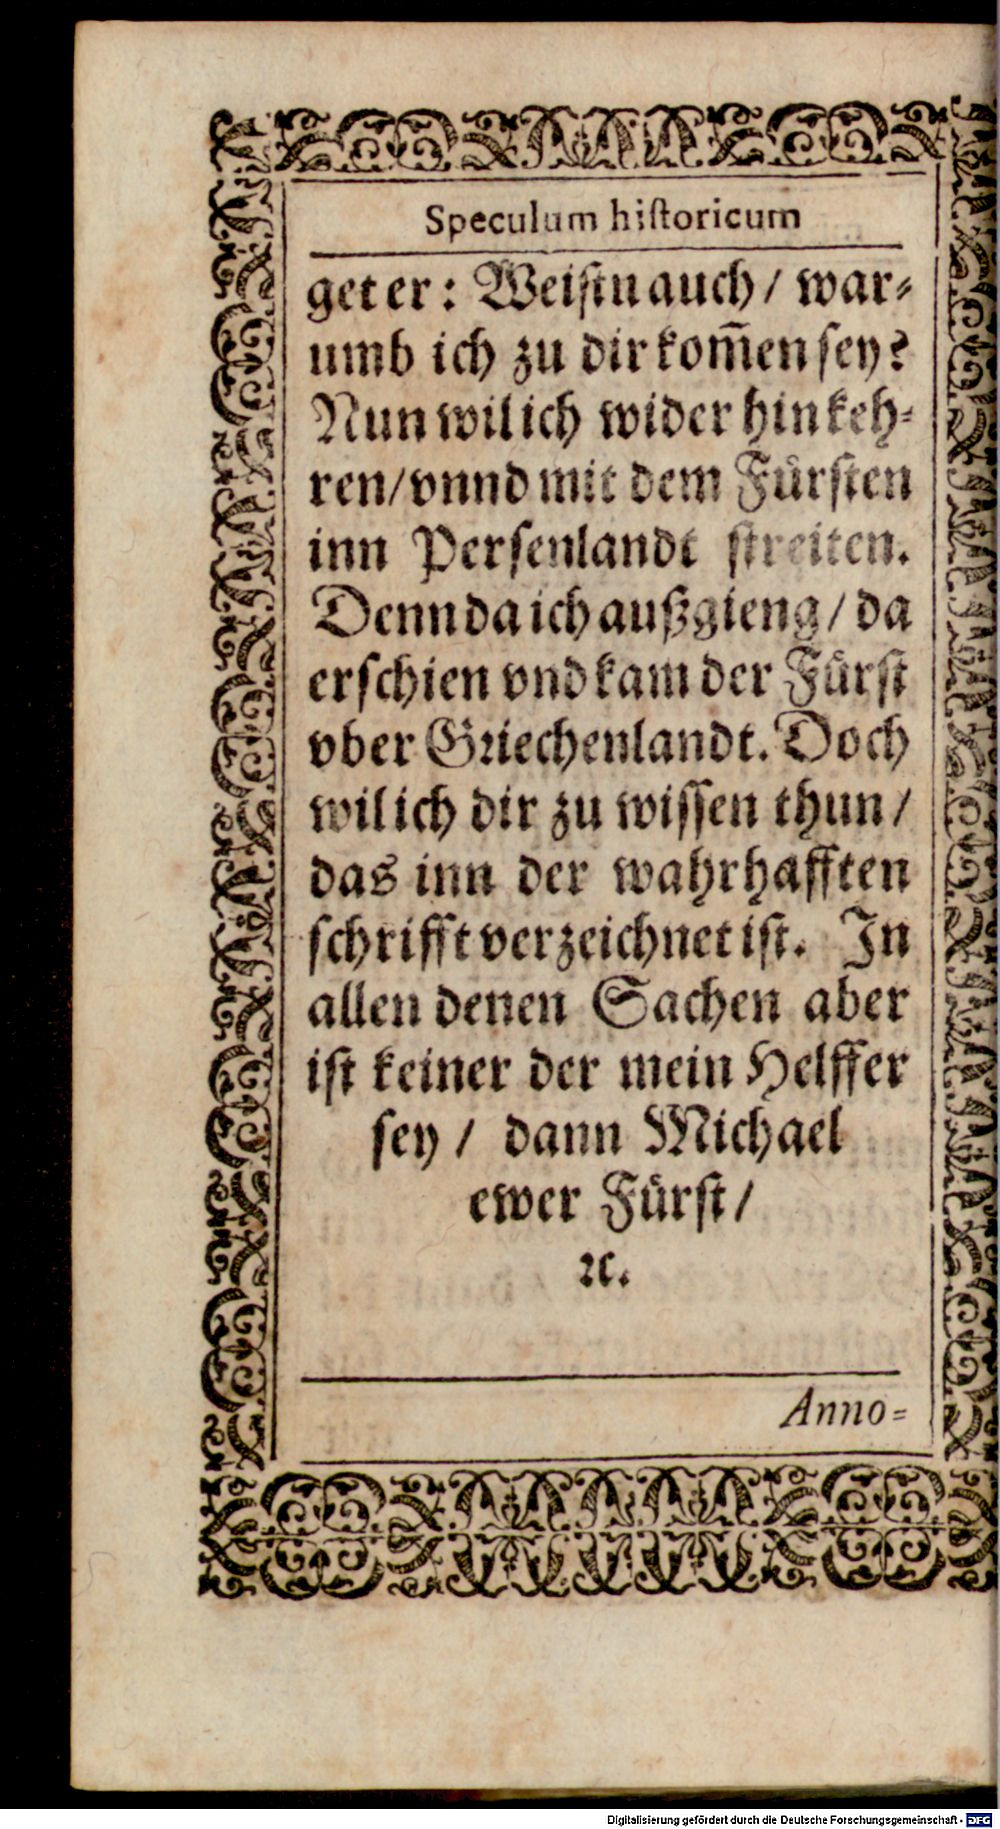 Speculum hiſtoricum
get er: Weiſtu auch / war⸗
umb ich zu dir kom̃en ſey?
Nun wil ich wider hin keh⸗
ren / vnnd mit dem Fürſten
inn Perſenlandt ſtreiten.
Denn da ich außgieng / da
erſchien vnd kam der Fürſt
vber Griechenlandt. Doch
wil ich dir zu wiſſen thun /
das inn der wahrhafften
ſchrifft verzeichnet iſt. In
allen denen Sachen aber
iſt keiner der mein Helffer
ſey / dann Michael
ewer Fürſt /
ꝛc.
Anno⸗
Digitalisierung gefördert durch die Deutsche Forschungsgemeinschaft - DFG